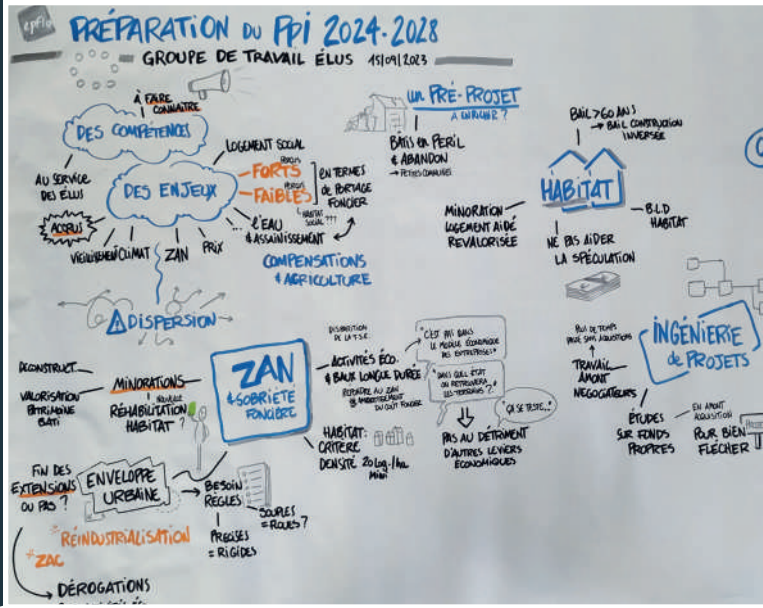 epflo
PRÉPARATION DU PPI 2024-2028
GROUPE DE TRAVAIL ÉLUS 15/09/2023
À FAIRE
CONNAITRE
DES COMPÉTENCES
AU SERVICE
DES ÉLUS
DES ENJEUX
ACCRUS
VIEILLISSEMENT
CLIMAT
ZAN
PRIX
...
LOGEMENT SOCIAL
FORTS
FAIBLES
EN TERMES
DE PORTAGE
FONCIER
HABITAT
SOCIAL ???
L'EAU
& ASSAINISSEMENT
COMPENSATIONS
& AGRICULTURE
DISPERSION
UN PRÉ-PROJET
À ENRICHIR ?
BÂTIS EN PERIL
& ABANDON
→ PETITES COMMUNES
BAIL > 60 ANS
→ BAIL CONSTRUCTION
INVERSÉE
HABITAT
MINORATION
LOGEMENT AIDÉ
REVALORISÉE
B.L.D
HABITAT
NE PAS AIDER
LA SPÉCULATION
INGÉNIERIE
de PROJETS
PLUS DE TEMPS
PASSÉ SANS ACQUISITIONS
TRAVAIL
AMONT
NEGOCIATEURS
ÉTUDES
SUR FONDS
PROPRES
EN AMONT
ACQUISITION
POUR BIEN
FLÉCHER
ZAN
& SOBRIÉTÉ
FONCIÈRE
DECONSTRUCT.
VALORISATION
PATRIMOINE
BATI
MINORATIONS
NOUVELLE
RÉHABILITATION
HABITAT ?
DISPARITION
DE LA T.S.E.
ACTIVITÉS ÉCO.
& BAUX LONGUE DURÉE
REPONDRE AU ZAN
AMORTISSEMENT
DU COÛT FONCIER
"C'EST PAS DANS
LE MODELE ÉCONOMIQUE
DES ENTREPRISES"
"DANS QUEL ÉTAT
ON RETROUVERA
LES TERRAINS ?"
"ÇA SE TESTE..."
PAS AU DÉTRIMENT
D'AUTRES LEVIERS
ÉCONOMIQUES
HABITAT:
CRITÈRE
DENSITÉ 20 Log./ha
MINI
FIN DES
EXTENSIONS
OU PAS ?
ENVELOPPE
URBAINE
BESOIN
RÈGLES
SOUPLES
= FLOUES ?
PRECISES
= RIGIDES
*RÉINDUSTRIALISATION
*ZAC
DÉROGATIONS